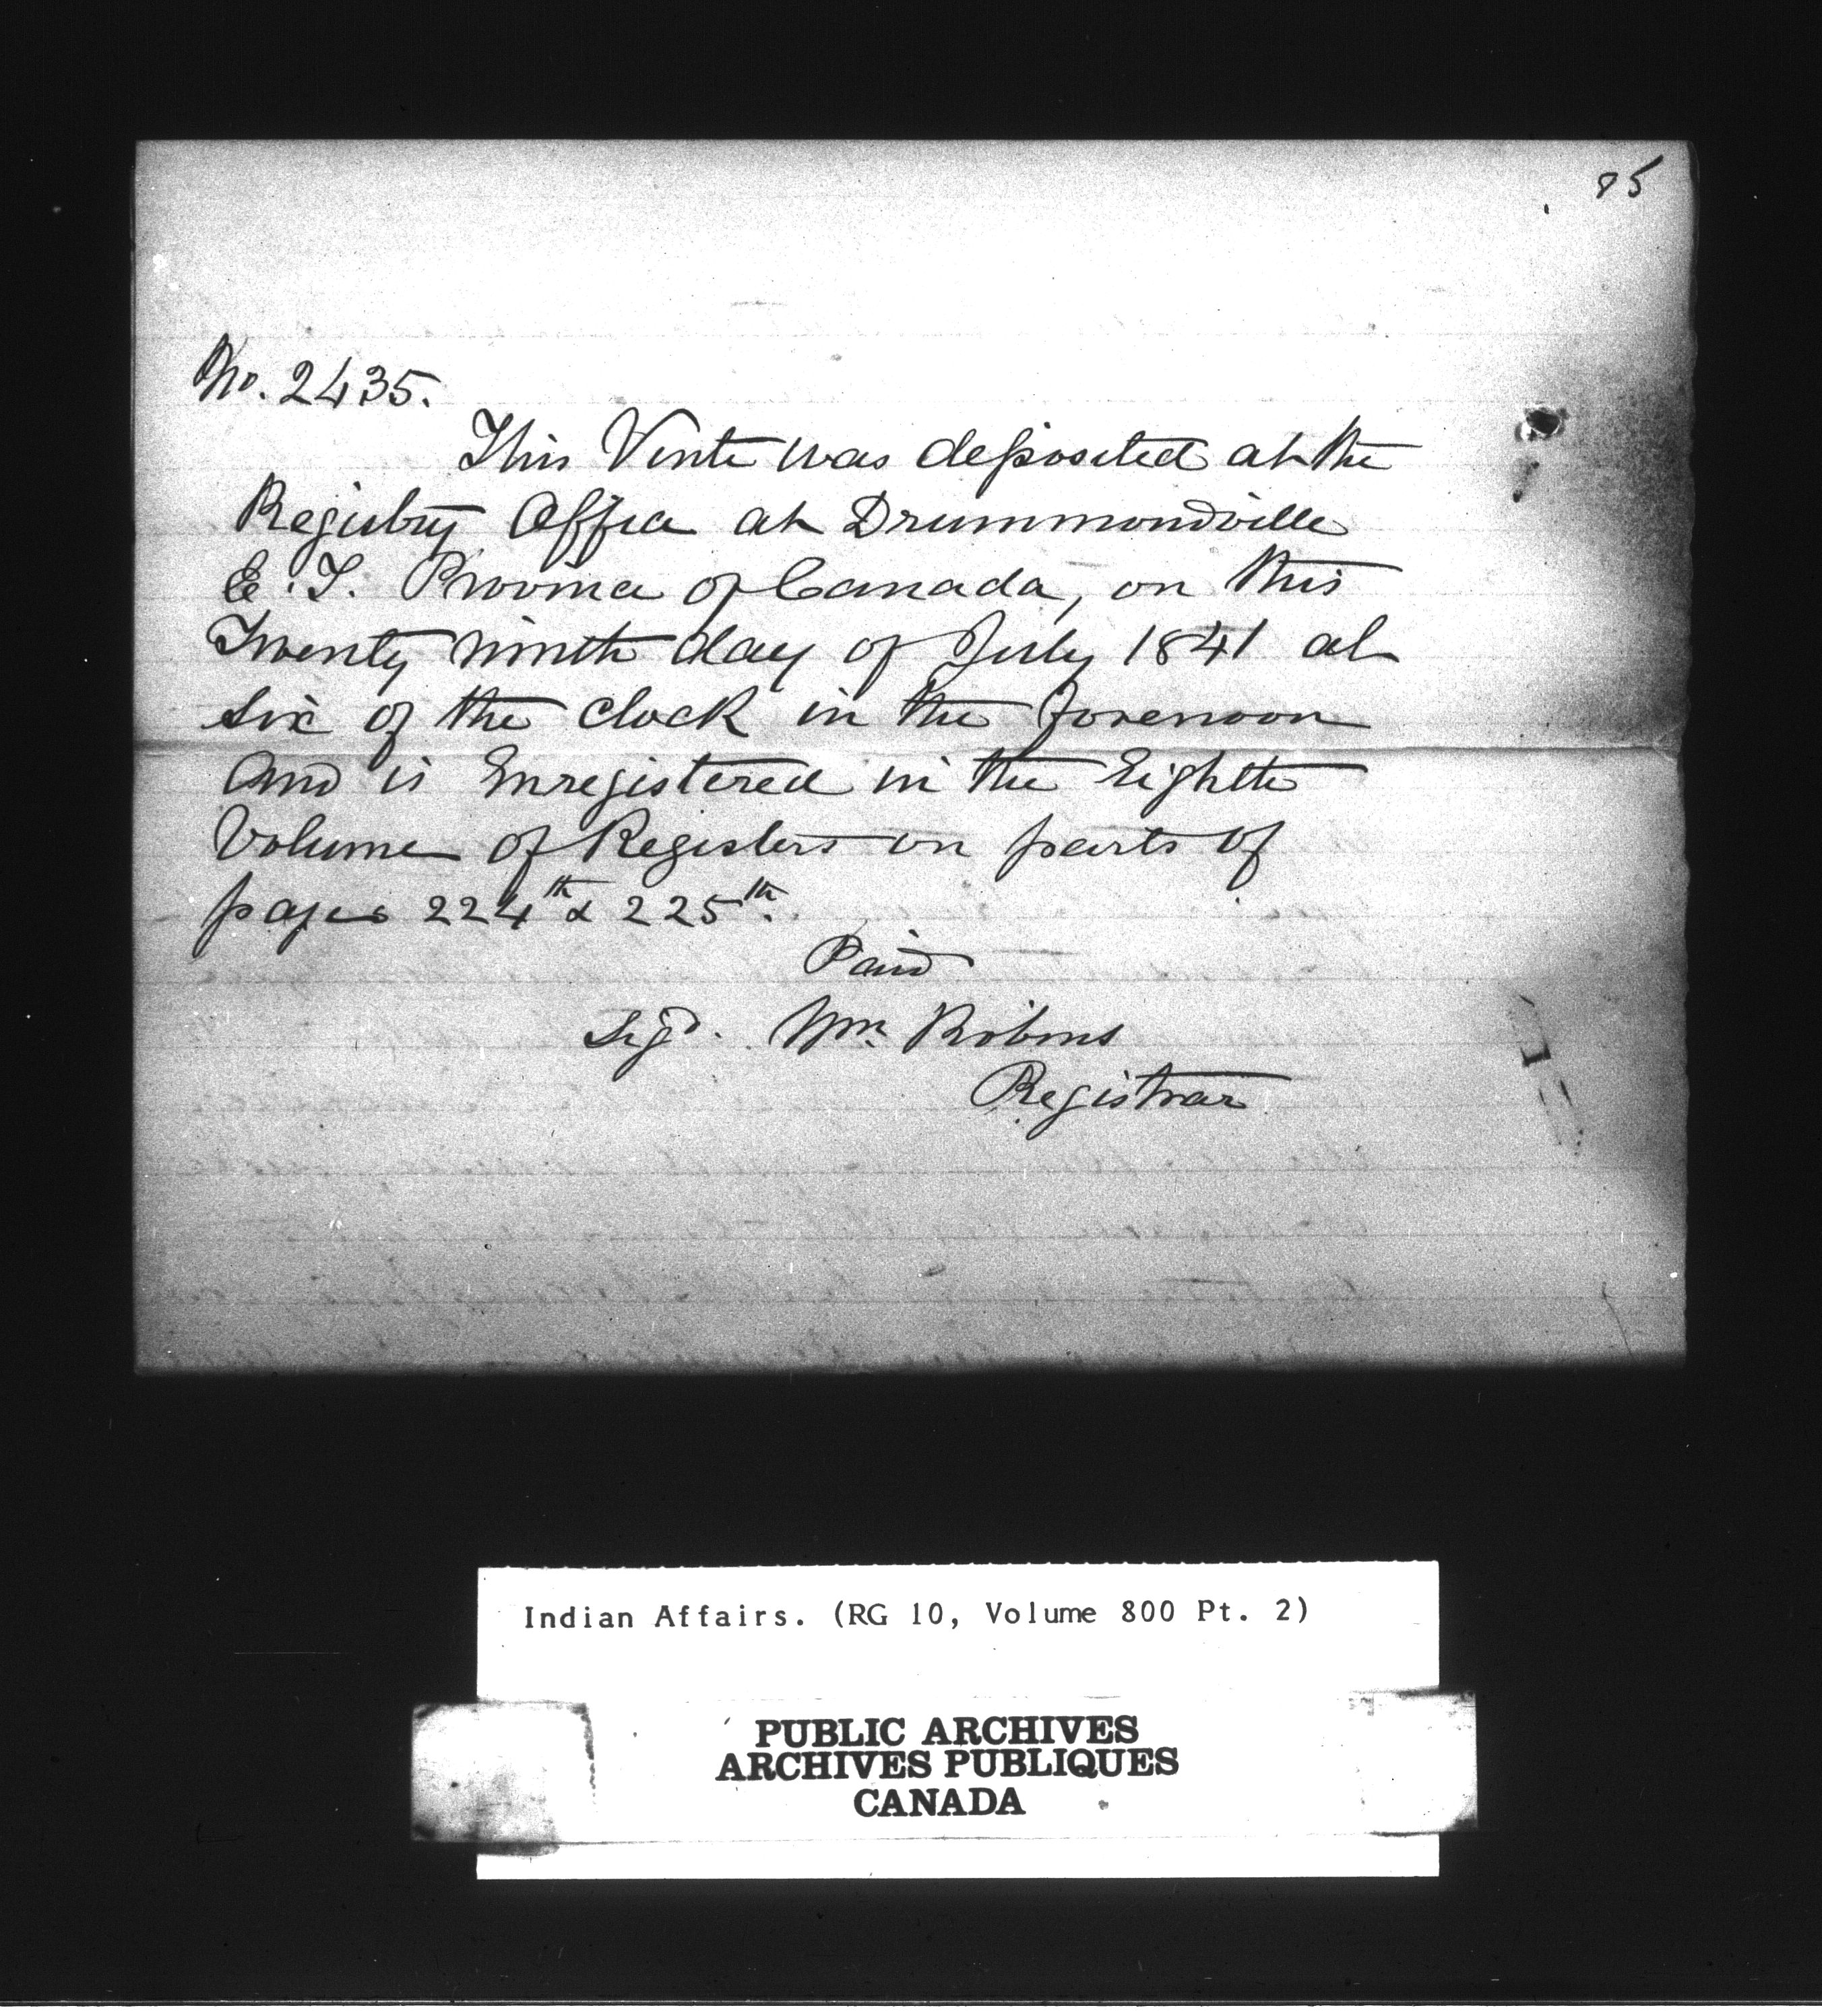 85
No. 2435.
This Vente was deposited at the
Registry Office at Drummondville
E. T. Province of Canada, on this
Twenty ninth day of July 1841 at
six of the clock in the forenoon
and is Enregistered in the Eighth
Volume of Registers on parts of
pages 224th & 225th.
Paid
Sigd. Wm. Robins
Registrar
Indian Affairs. (RG 10, Volume 800 Pt. 2)
PUBLIC ARCHIVES
ARCHIVES PUBLIQUES
CANADA